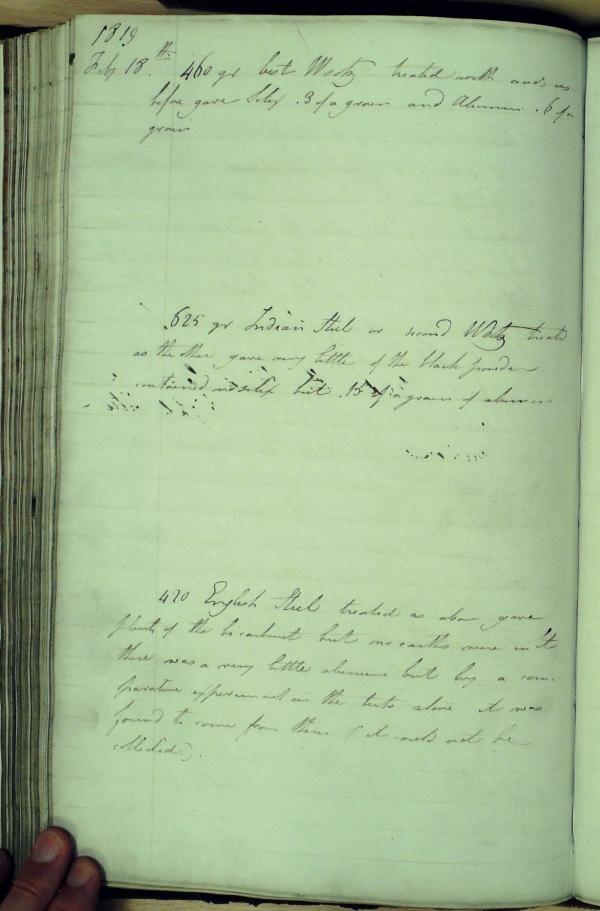 1819
Feb 18.th 460 gr best Wootz treated with acids as
before gave Silex .3 of a grain and Alumine .6 of a
grain
.625 gr Indian Steel or second Wootz treated
as the other gave very little of the black powder
contained no silex but .15 of a grain of alumine
420 English Steel treated as above gave
plenty of the bicarburet but no earths were in it
there was a very little alumine but by a com-
parative experiment on the tests alone it was
found to come from them (it could not be
collected).